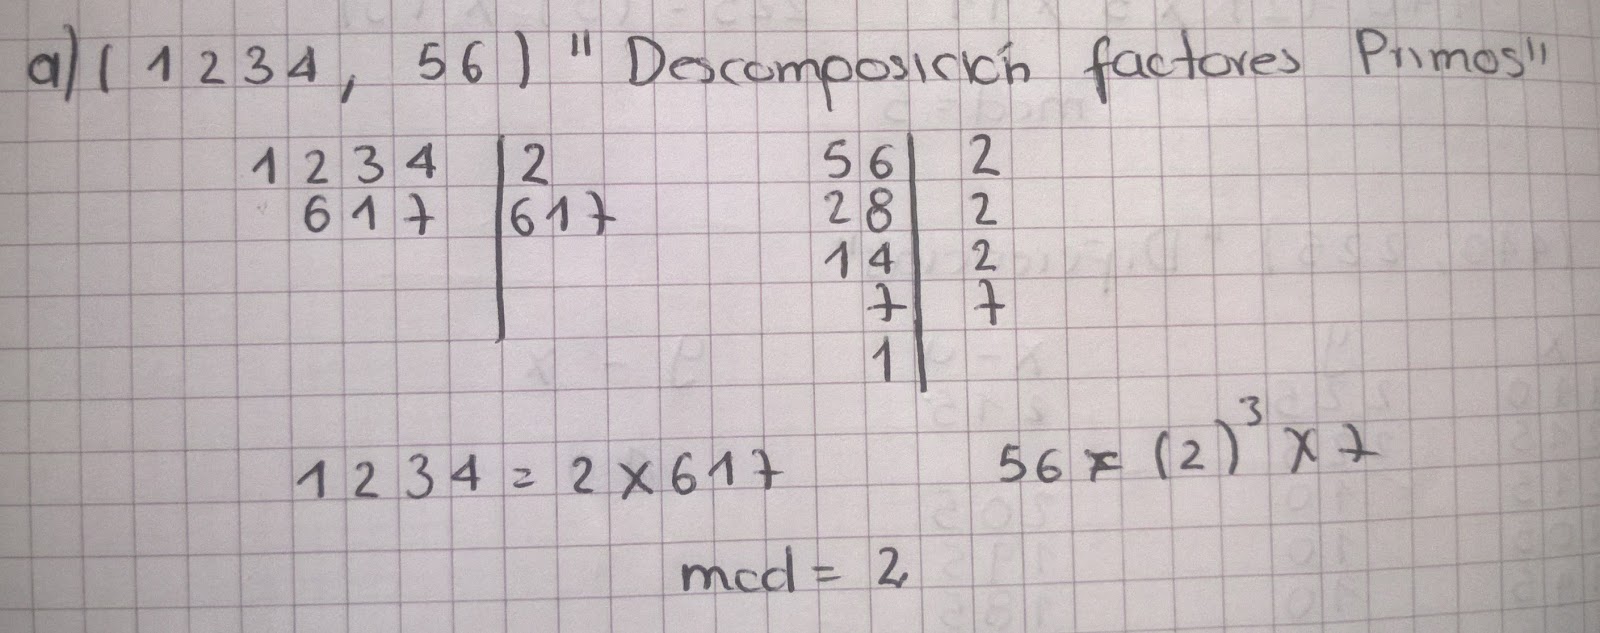 a) (1234, 56) "Descomposición factores Primos"
1234 | 2
617 | 617
56 | 2
28 | 2
14 | 2
7 | 7
1 |
1234 = 2 x 617
56 = (2)³ x 7
mcd = 2